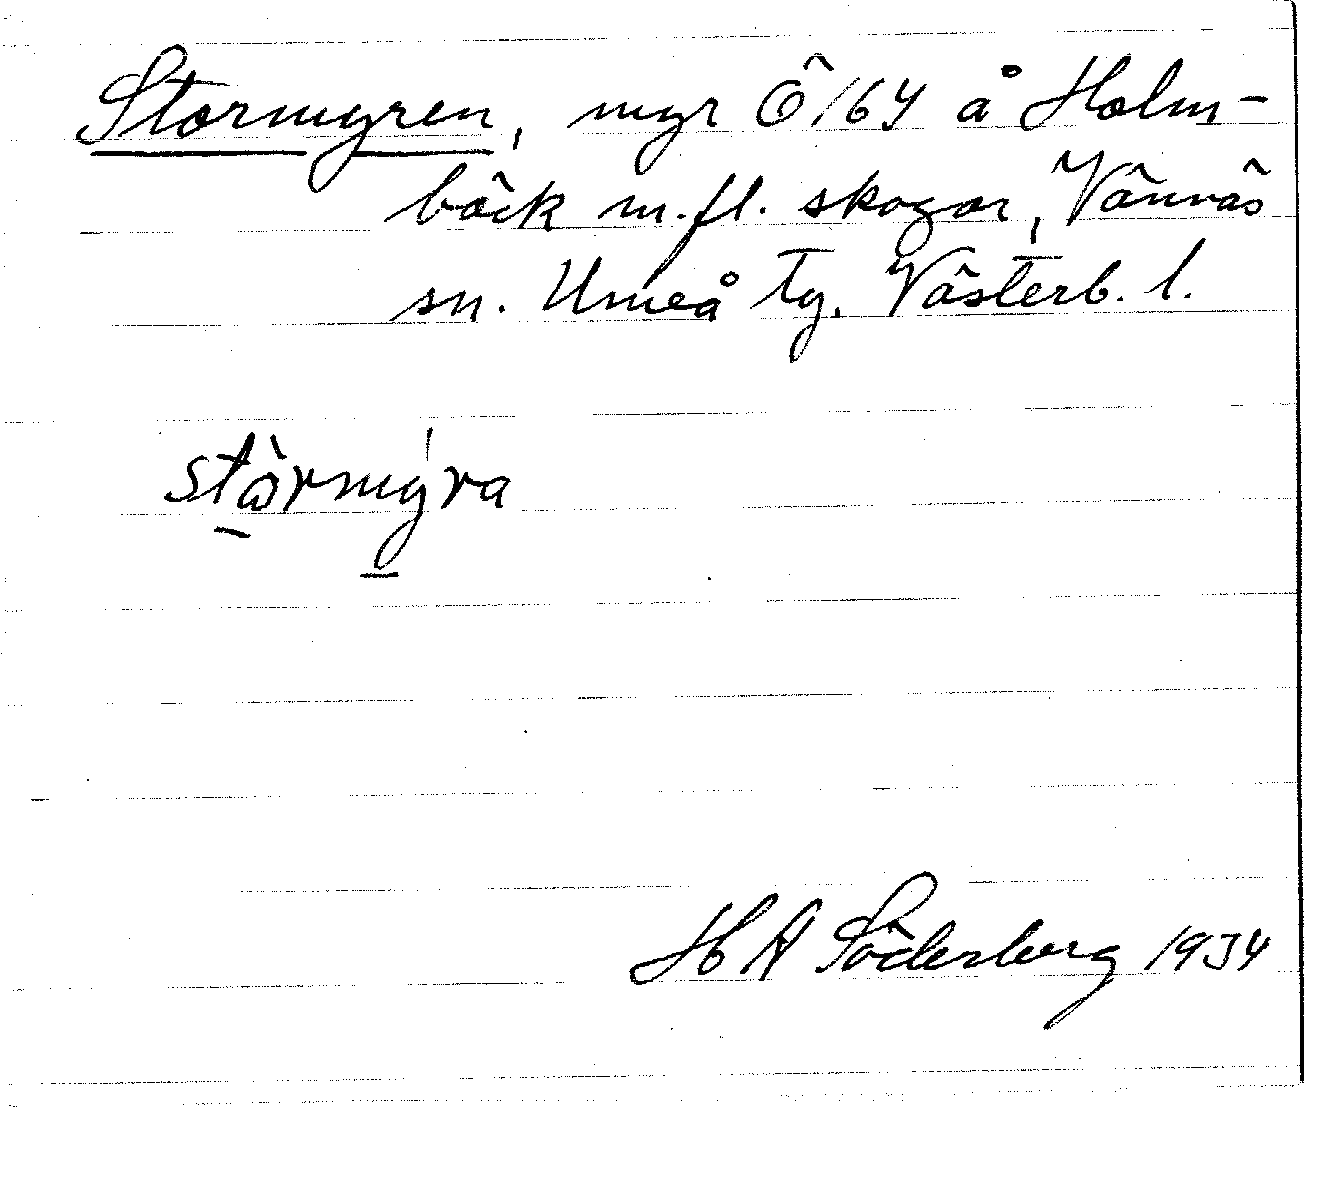 Stormyren, myr Ö/64 å Holm-
bäck m.fl. skogar, Vännäs
sn. Umeå tg. Västerb. l.
stòrmýra
H A Söderberg 1934